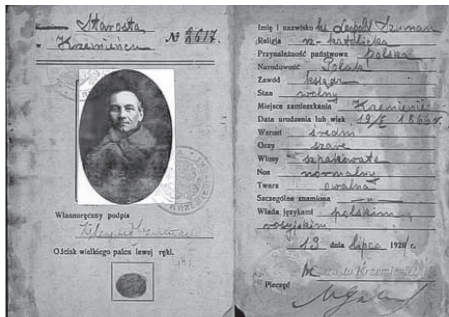 Starosta
w Krzemieńcu № 2617
Własnoręczny podpis
Odcisk wielkiego palca lewej ręki.
Imię i nazwisko ks. Leopold Szuman
Religja rz-katolicka
Przynależność państwowa polska
Narodowość Polak
Zawód ksiądz
Stan wolny
Miejsce zamieszkania Krzemieniec
Data urodzenia lub wiek
Wzrost średni
Oczy szare
Włosy szpakowate
Nos normalny
Twarz owalna
Szczególne znamiona
Włada językami polskim,
rosyjskim
13 dnia lipca
Pieczęć